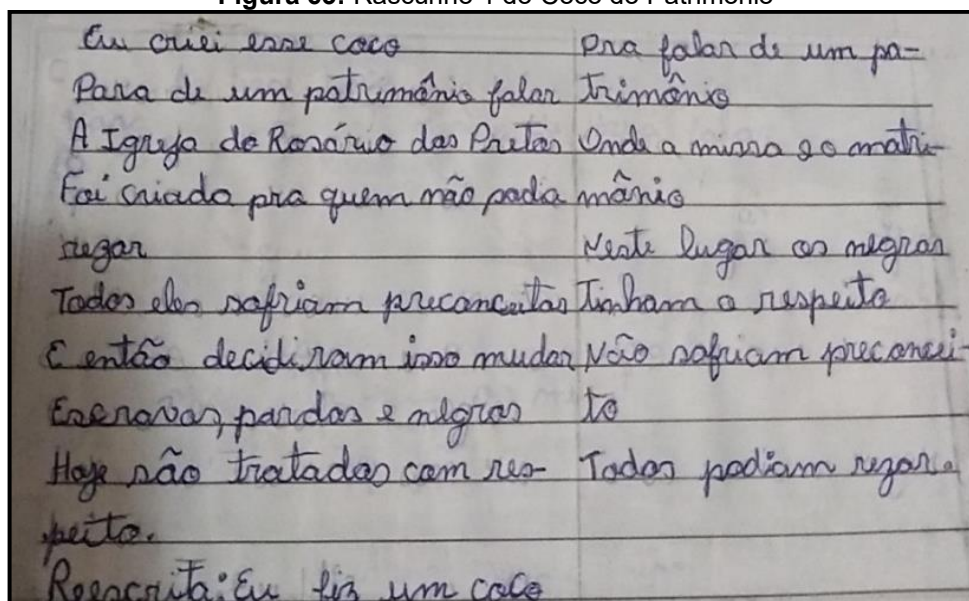 Figura 65: Rascunho 1 do Coco do Patrimônio
Eu criei esse coco
Para de um patrimônio falar
A Igreja do Rosário dos Pretos
Foi criado pra quem não podia
rezar
Todos eles sofriam preconceitos
E então decidiram isso mudar
Escravos, pardos e negros
Hoje são tratados com res-
peito.
Reescrita: Eu fiz um coco
Pra falar de um pa-
trimônio
Onde a missa e o matri-
mônio
Neste lugar os negros
Tinham o respeito
Não sofriam preconcei-
to
Todos podiam rezar.